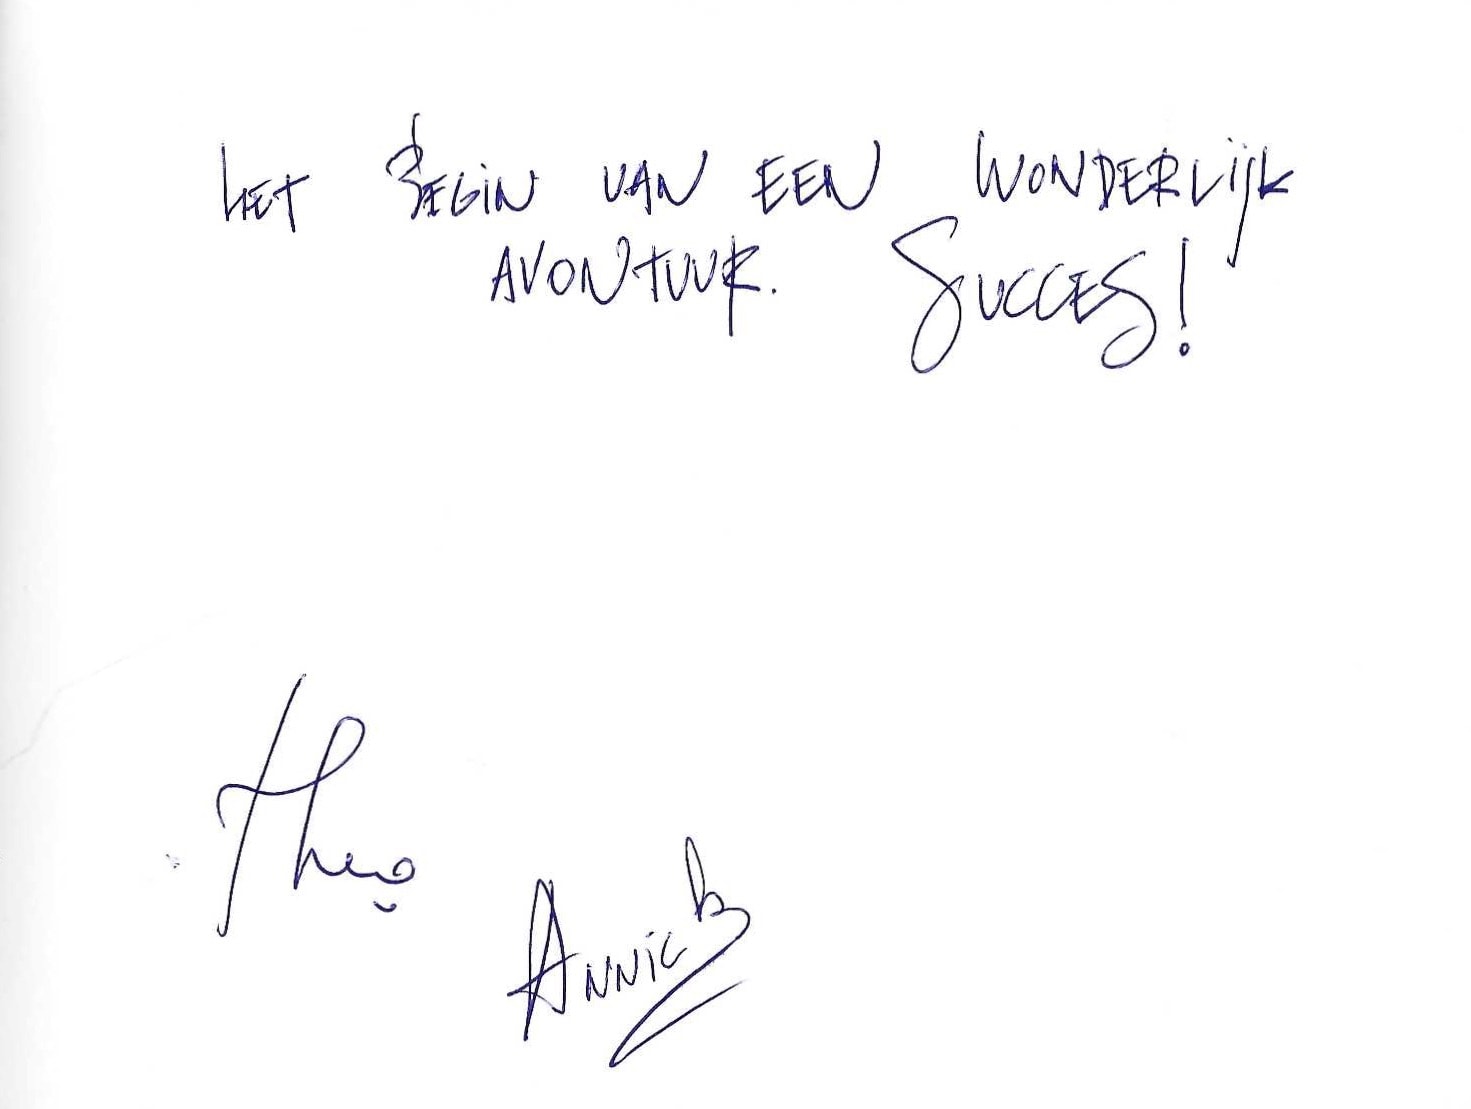 HET BEGIN VAN EEN WONDERLIJK
AVONTUUR. SUCCES!
Theo
ANNICK